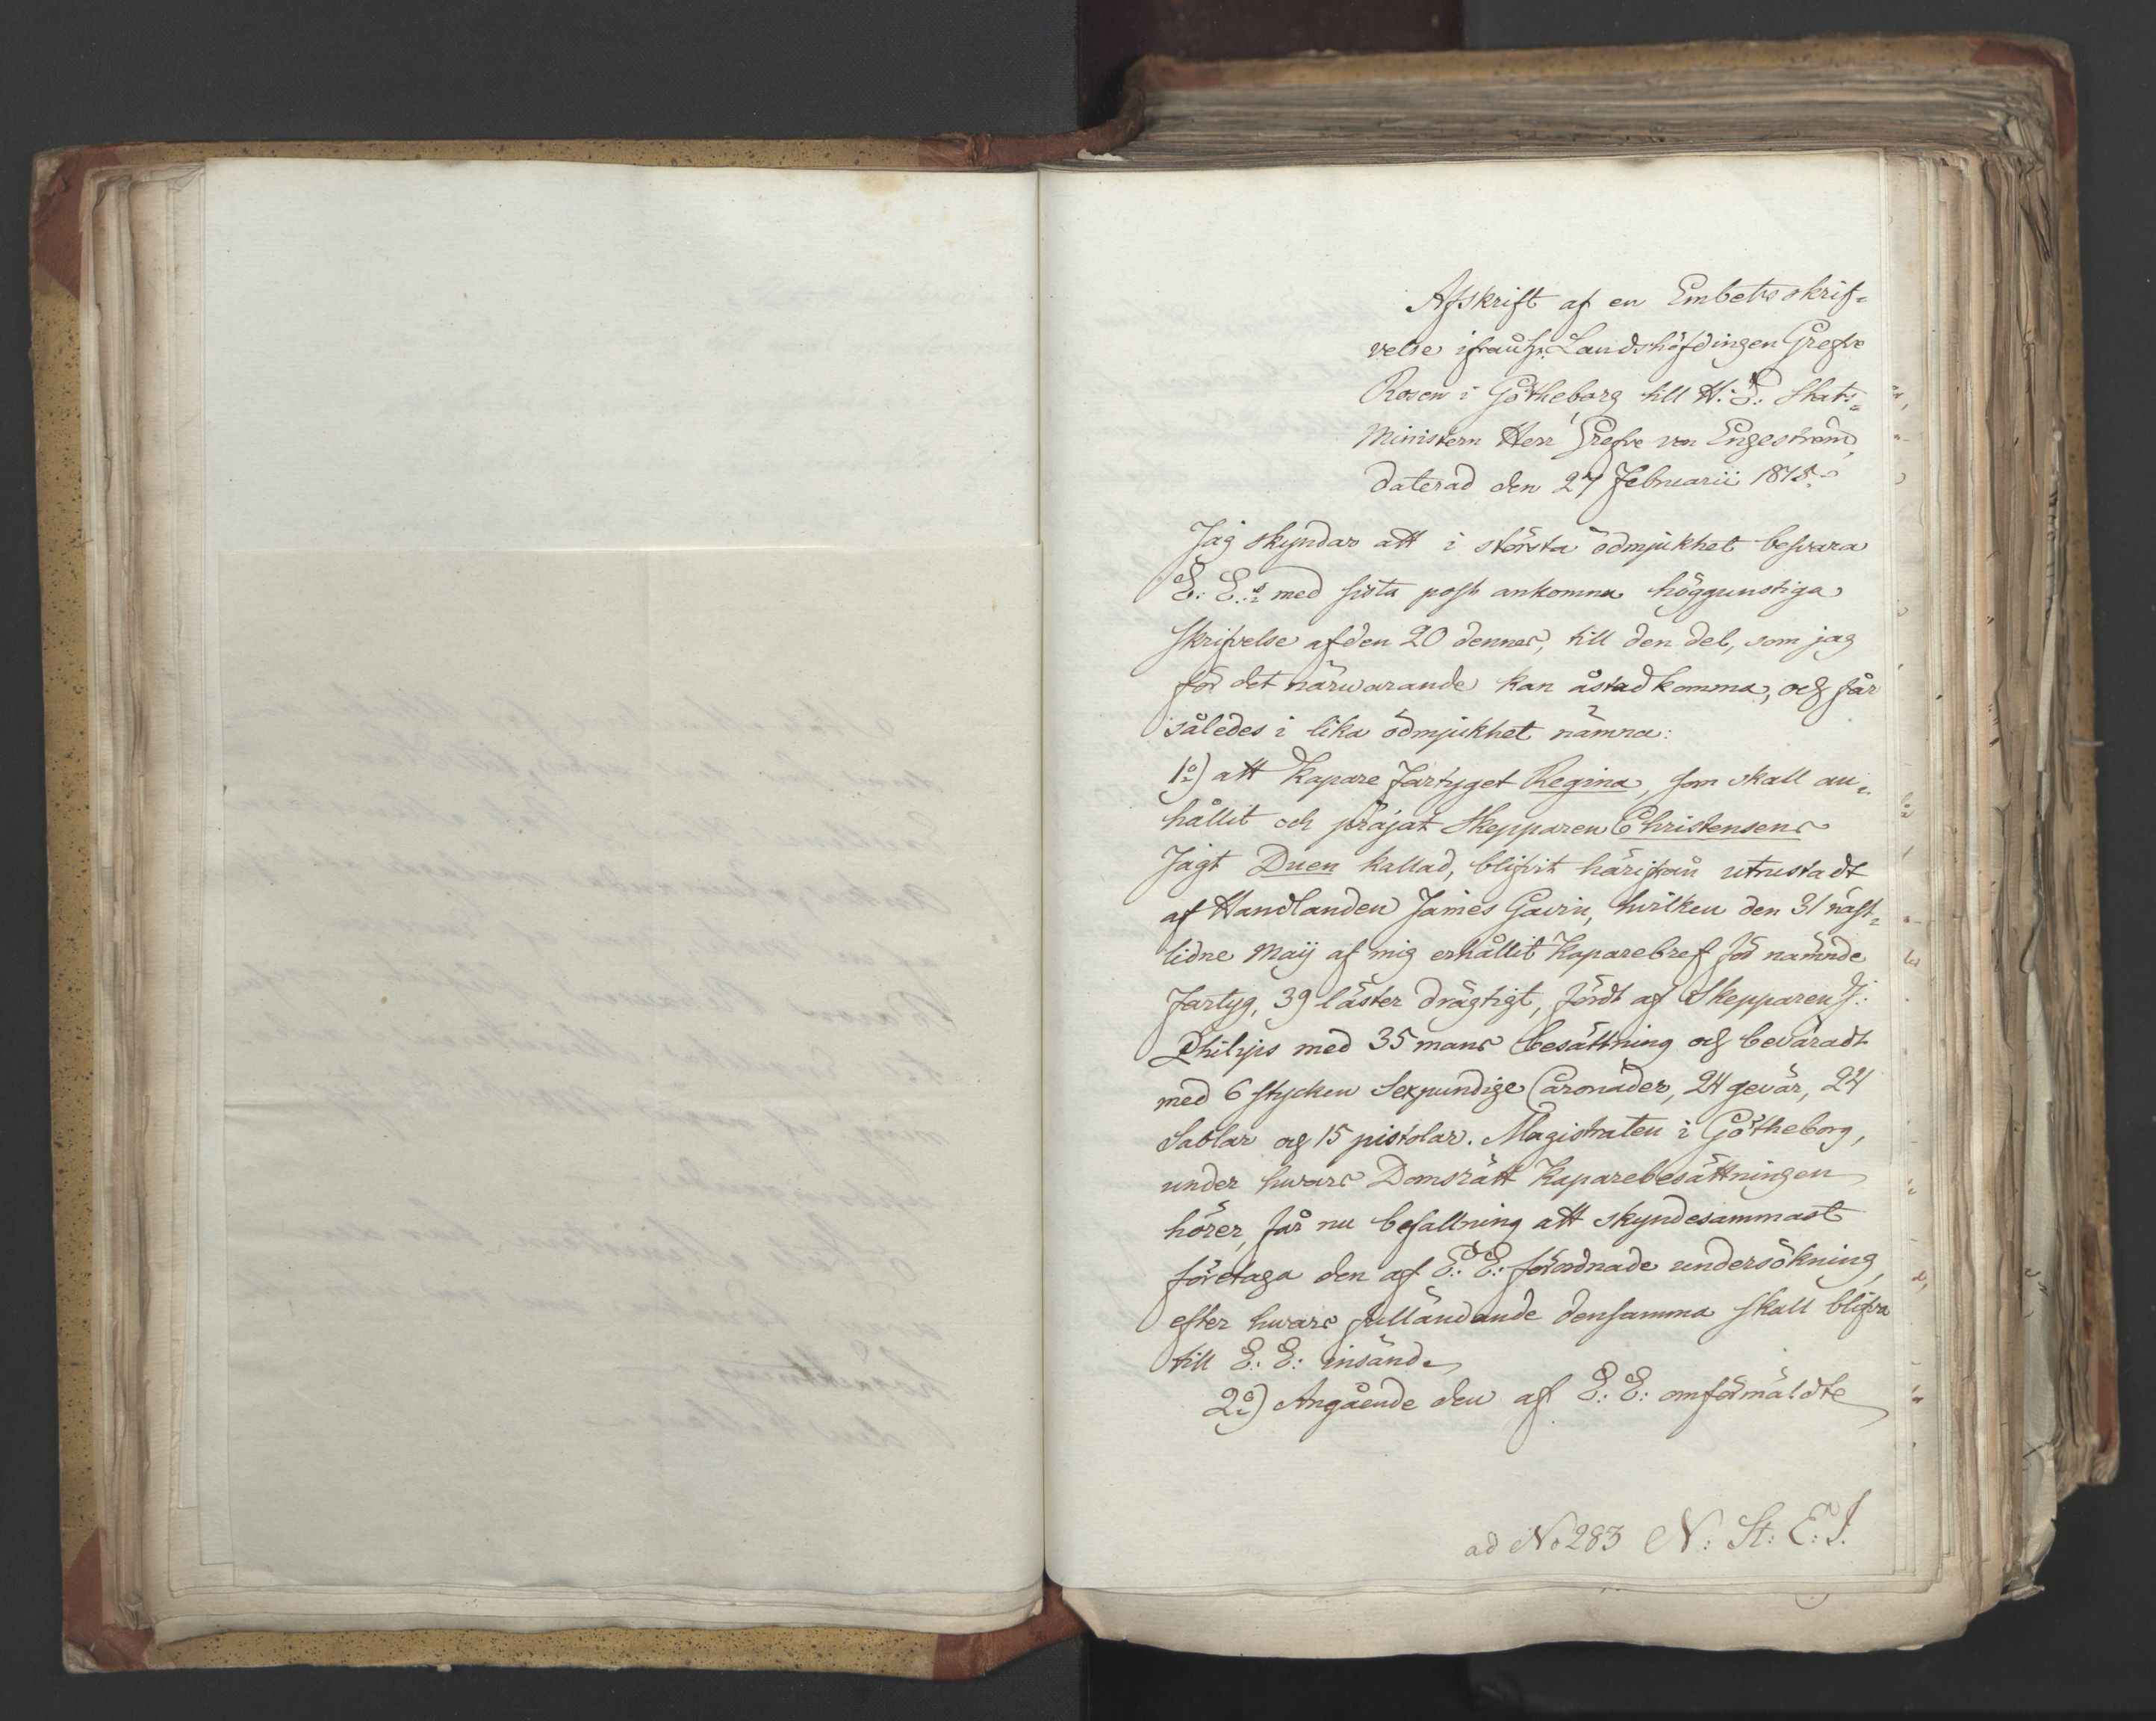 Afskrift af en Embetsskrif=
velse ifrån Hr. Landshöfdingen Grefve
Rosen i Götheborg till H: E: Stats=
Ministern Herr Grefve von Engeström,
daterad den 27 Februarii 1815.
Jag skyndar att i största ödmjukhet besvara
E: E:s med sista post ankomna höggunstiga
skrifvelse af den 20 dennes, till den del, som jag
för det närwarande kan åstadkomma, och får
således i lika ödmjukhet nämna:
1o) att Kapare fartyget Regina, som skall an=
hållit och prajat Skepparen Christensens
Jagt Duen kallad, blifvit härifrån utrustadt
af Handlanden James Gavin, hvilken den 31 näst=
lidne Maij af mig erhållit Kaparebref för nämnde
fartyg, 39 läster drägtigt, fördt af Skepparen J:
Philips med 35 mans besättning och beväradt
med 6 stycken Sexpundige Caronader, 24 gevär, 24
Sablar och 15 pistolar. Magistraten i Götheborg,
under hwars Domsrätt Kaparebesättningen
hörer, får nu befallning att skyndesammast
företaga den af E: E: förordnade undersökning,
efter hwars fulländande densamma skall blifva
till E: E: insänd.
2o) Angående den af E: E: omförmäldte
ad No 283 N: St: E: J.